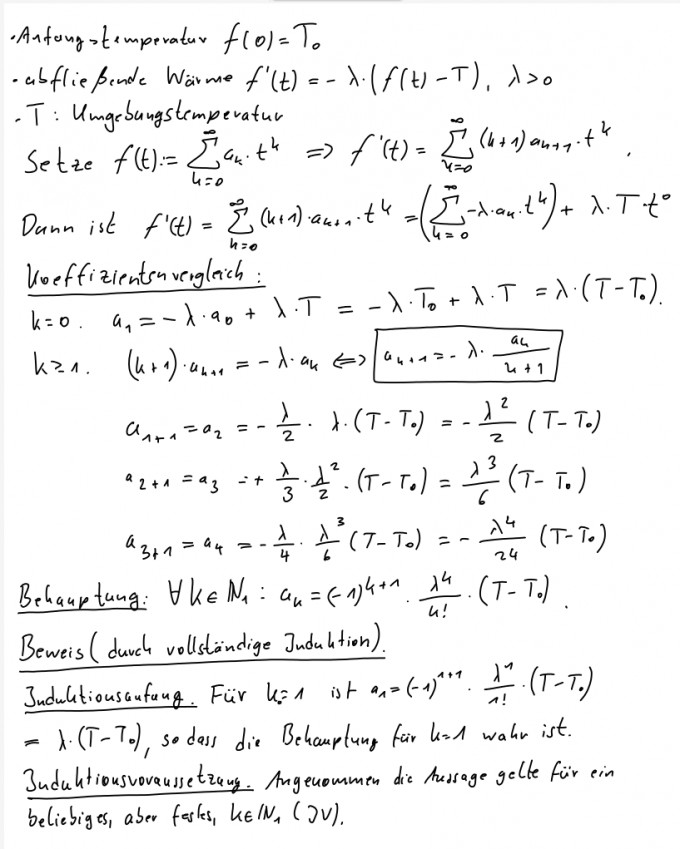 · Anfangstemperatur f(0) = T₀
· abfließende Wärme f'(t) = - λ · (f(t) - T), λ > 0
· T: Umgebungstemperatur
Setze f(t) := ∑_{k=0}^{∞} a_k · t^k ⇒ f'(t) = ∑_{k=0}^{∞} (k+1) a_{k+1} · t^k.
Dann ist f'(t) = ∑_{k=0}^{∞} (k+1) · a_{k+1} · t^k = (∑_{k=0}^{∞} -λ · a_k · t^k) + λ · T · t^0
Koeffizientenvergleich:
k=0. a_1 = - λ · a_0 + λ · T = - λ · T₀ + λ · T = λ · (T - T₀).
k≥1. (k+1) · a_{k+1} = - λ · a_k ⇔ a_{k+1} = - λ · a_k/(k+1)
a_{1+1} = a_2 = - λ/2 · λ · (T - T₀) = - λ²/2 (T - T₀)
a_{2+1} = a_3 = + λ/3 · λ²/2 · (T - T₀) = λ³/6 (T - T₀)
a_{3+1} = a_4 = - λ/4 · λ³/6 (T - T₀) = - λ⁴/24 (T - T₀)
Behauptung: ∀ k ∈ ℕ₁ : a_k = (-1)^{k+1} · λ^k/k! · (T - T₀).
Beweis (durch vollständige Induktion).
Induktionsanfang. Für k=1 ist a_1 = (-1)^{1+1} · λ^1/1! · (T - T₀)
= λ · (T - T₀), so dass die Behauptung für k=1 wahr ist.
Induktionsvoraussetzung. Angenommen die Aussage gelte für ein
beliebiges, aber festes, k ∈ ℕ₁ (IV).